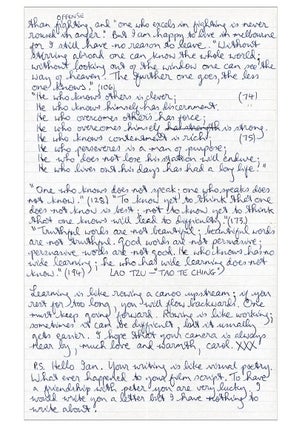 OFFENSIVE
than fighting, and "one who excels in fighting is never
roused in anger." But I am happy to live in melbourne
for I still have no reason to leave. "Without
stirring abroad one can know the whole world;
without looking out of the window one can see the
way of heaven. The further one goes, the less
one knows." (106)
"He who knows others is clever; (74)
He who knows himself has discernment.
He who overcomes others has force;
He who overcomes himself is strong.
He who knows contentment is rich; (75)
He who perseveres is a man of purpose;
He who does not lose his station will endure;
He who lives out his days has had a long life."
"One who knows does not speak; one who speaks does
not know." (128) "To know yet to think that one
does not know is best; not to know yet to think
that one knows will lead to difficulty." (173)
"Truthful words are not beautiful; beautiful words
are not truthful. Good words are not persuasive;
persuasive words are not good. He who knows has no
wide learning; he who has wide learning does not
know." (194) LAO TZU - "TAO TE CHING"
Learning is like rowing a canoe upstream; if you
rest for too long, you will flow backwards. One
must keep going forward. Rowing is like working;
sometimes it can be difficult, but it usually
gets easier. I hope that your camera is always
near by, much love and warmth, carol. XXX
P.S. Hello Ian. Your writing is like visual poetry.
What ever happened to your film script. To have
a friendship with peter you are very lucky. I
would write you a letter but I have nothing to
write about!